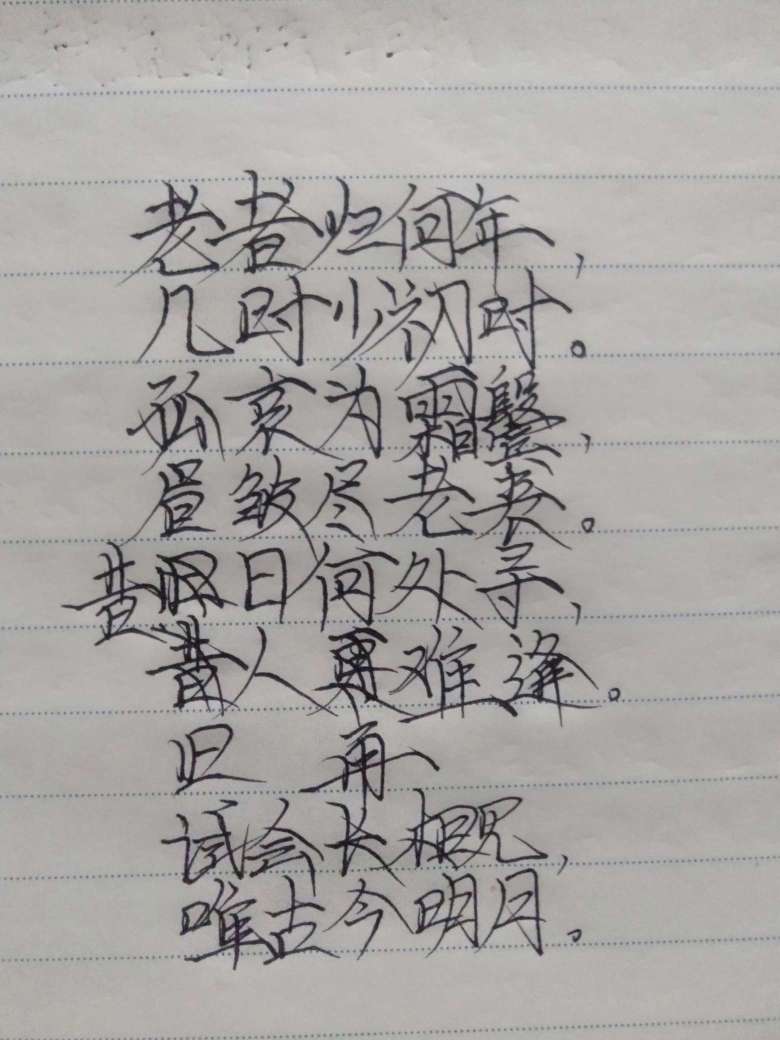 老者归何年，
几时少初时。
孤哀为霜鬓，
眉皱尽老去。
昔日何处寻，
昔人更难逢。
旧 再
试会长相见，
唯古今明月。